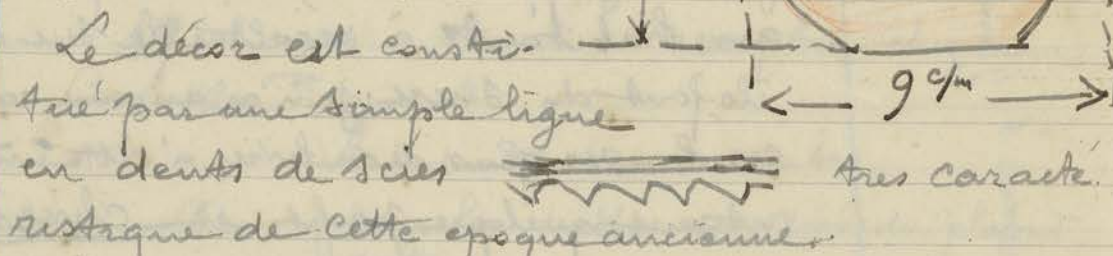 Le décor est consti-
tué par une simple ligne
en dents de scies très caracté.
ristique de cette epoque ancienne.
9 c/m